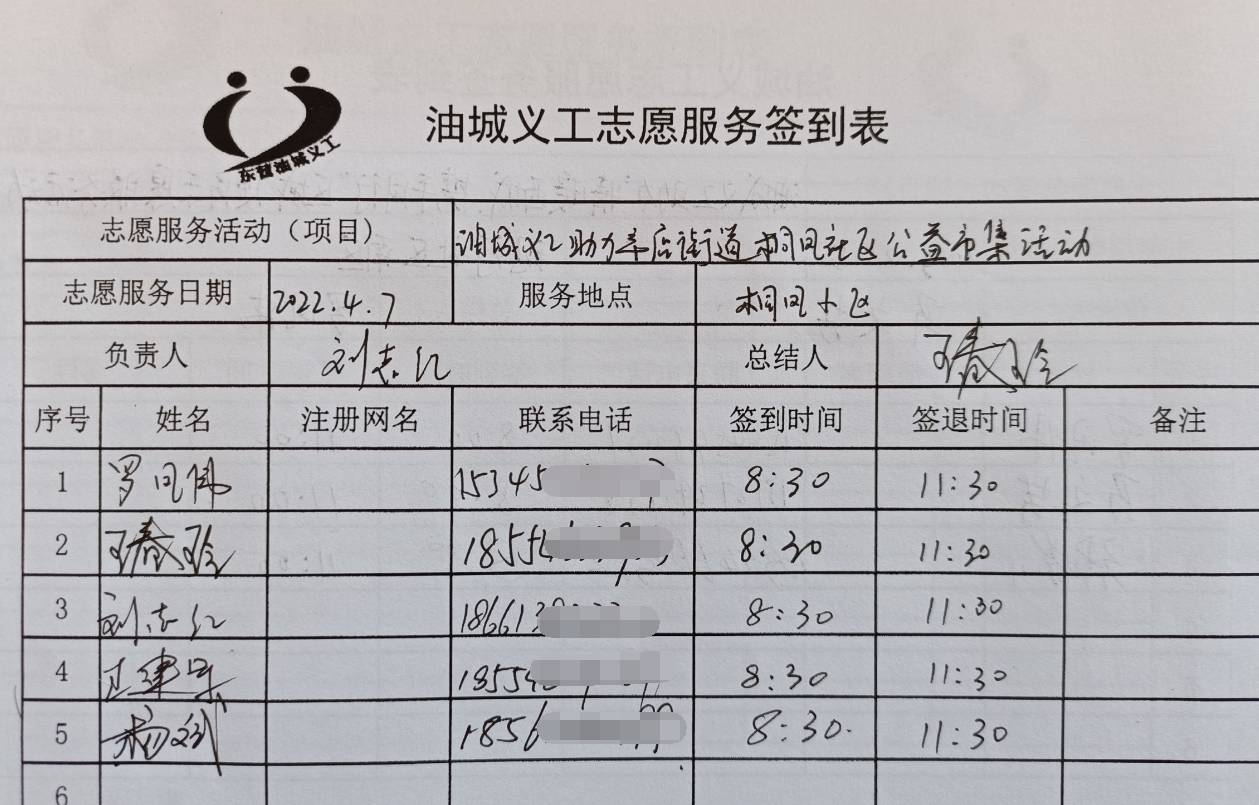 东营油城义工
油城义工志愿服务签到表
志愿服务活动（项目） 油城义工助力辛店街道桐凤社区公益市集活动
志愿服务日期 2022.4.7 服务地点 桐凤小区
负责人 刘志红 总结人 王春玲
序号 姓名 注册网名 联系电话 签到时间 签退时间 备注
1 罗 15345 8:30 11:30
2 王春玲 1855 8:30 11:30
3 刘志红 18661 8:30 11:30
4 建 1855 8:30 11:30
5 杨 1856 8:30 11:30
6